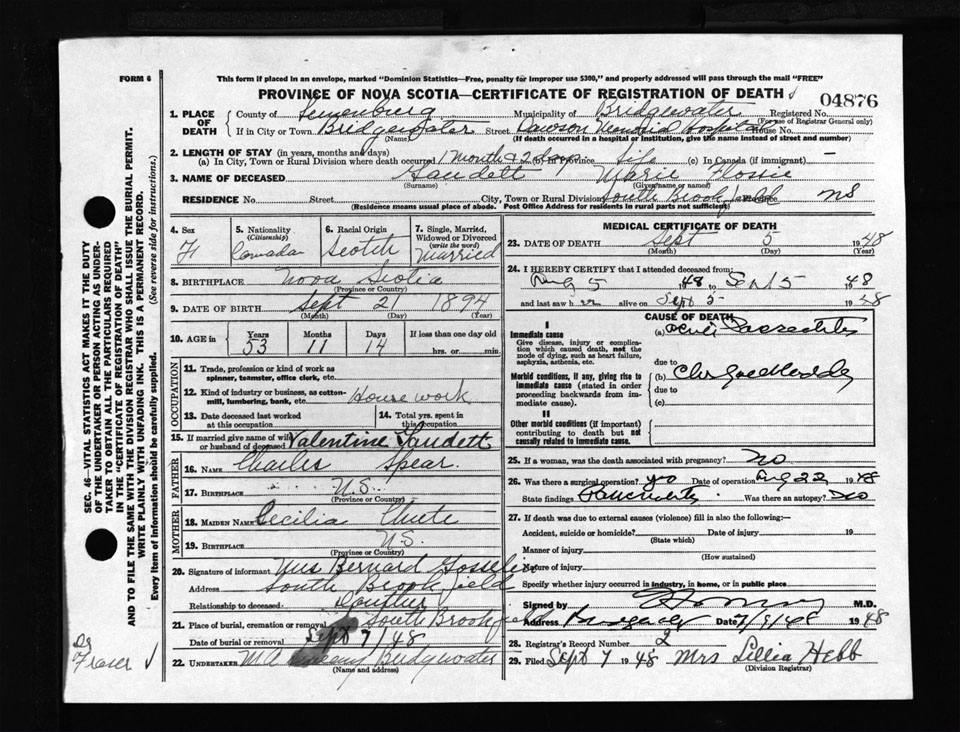 FORM 6
This form if placed in an envelope, marked "Dominion Statistics—Free, penalty for improper use $300," and properly addressed will pass through the mail "FREE"
PROVINCE OF NOVA SCOTIA—CERTIFICATE OF REGISTRATION OF DEATH
04876
1. PLACE OF DEATH
County of Lunenburg Municipality of Bridgewater Registered No.
(For use of Registrar General only)
If in City or Town Bridgewater Street Dawson Memorial Hospital House No.
(Name) (If death occurred in a hospital or institution, give the name instead of street and number)
2. LENGTH OF STAY (in years, months and days)
(a) In City, Town or Rural Division where death occurred 1 month & 2 days Province life (c) In Canada (if immigrant) —
3. NAME OF DECEASED Gaudett Marie Flossie
(Surname) (Given name or names)
RESIDENCE No. Street City, Town or Rural Division South Brookfield NS
(Residence means usual place of abode. Post Office Address for residents in rural parts not sufficient)
4. Sex F
5. Nationality (Citizenship) Canada
6. Racial Origin Scotch
7. Single, Married, Widowed or Divorced (write the word) Married
8. BIRTHPLACE Nova Scotia
(Province or Country)
9. DATE OF BIRTH Sept 21 1894
(Month) (Day) (Year)
10. AGE in Years Months Days If less than one day old
53 11 14 hrs. or min.
OCCUPATION
11. Trade, profession or kind of work as spinner, teamster, office clerk, etc.
12. Kind of industry or business, as cotton-mill, lumbering, bank, etc. House work
13. Date deceased last worked at this occupation
14. Total yrs. spent in this occupation
15. If married give name of wife or husband of deceased Valentine Gaudett
FATHER
16. NAME Charles Spear.
17. BIRTHPLACE N.S.
(Province or Country)
MOTHER
18. MAIDEN NAME Cecilia Chute
19. BIRTHPLACE N.S.
(Province or Country)
20. Signature of informant Mrs Bernard Gosselin
Address South Brookfield
Relationship to deceased Daughter
21. Place of burial, cremation or removal South Brookfield
Date of burial or removal Sept 7/48
22. UNDERTAKER M.A. Bridgewater
(Name and address)
MEDICAL CERTIFICATE OF DEATH
23. DATE OF DEATH Sept 5 1948
(Month) (Day) (Year)
24. I HEREBY CERTIFY that I attended deceased from:
Aug 5 1948 to Sept 5 1948
and last saw her alive on Sept 5 1948
CAUSE OF DEATH
I
Immediate cause
Give disease, injury or complication which caused death, not the mode of dying, such as heart failure, asphyxia, asthenia, etc.
(a)
due to
Morbid conditions, if any, giving rise to immediate cause (stated in order proceeding backwards from immediate cause).
(b)
due to
(c)
II
Other morbid conditions (if important) contributing to death but not causally related to immediate cause.
25. If a woman, was the death associated with pregnancy? No
26. Was there a surgical operation? yes Date of operation Aug 22 1948
State findings Was there an autopsy? No
27. If death was due to external causes (violence) fill in also the following:—
Accident, suicide or homicide? Date of injury 19
(State which)
Manner of injury
(How sustained)
Nature of injury
Specify whether injury occurred in industry, in home, or in public place
Signed by M.D.
Address Date 7/9/48 1948
28. Registrar's Record Number 2
29. Filed Sept 7 1948 Mrs Lillia Hebb
(Division Registrar)
SEC. 46—VITAL STATISTICS ACT MAKES IT THE DUTY
OF THE UNDERTAKER OR PERSON ACTING AS UNDERTAKER TO OBTAIN ALL THE PARTICULARS REQUIRED
IN THE "CERTIFICATE OF REGISTRATION OF DEATH"
AND TO FILE THE SAME WITH THE DIVISION REGISTRAR WHO SHALL ISSUE THE BURIAL PERMIT.
WRITE PLAINLY WITH UNFADING INK. THIS IS A PERMANENT RECORD.
Every item of information should be carefully supplied. (See reverse side for instructions.)
Dr Fraser